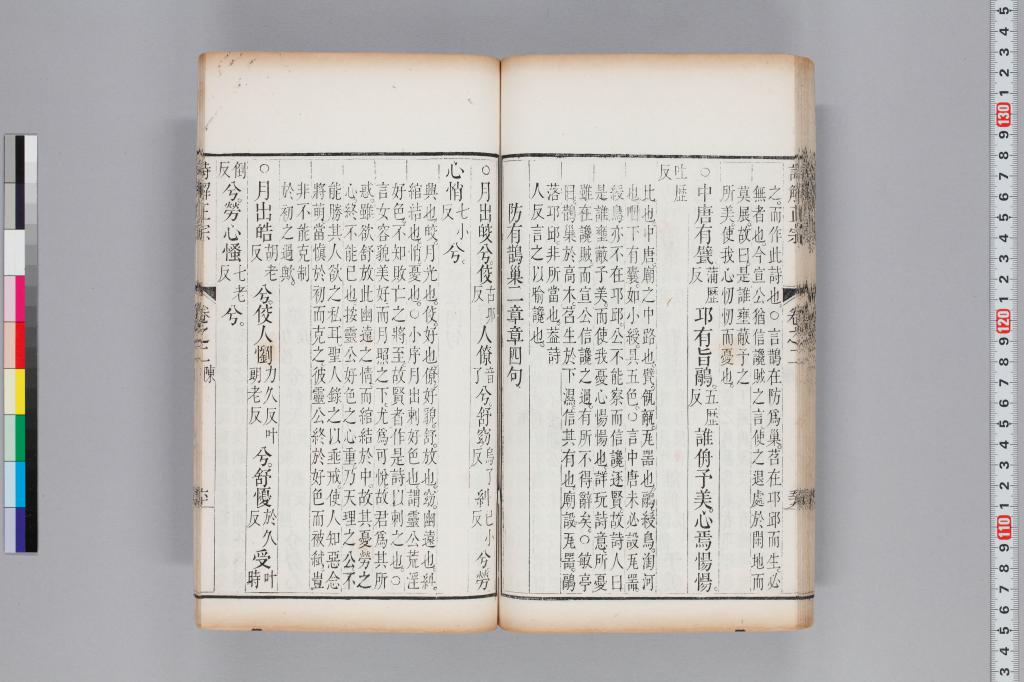 詩解正宗 卷之二
之。而作此詩也。○言鵲在防爲巢。苕在邛邱而生。必
無者也。今宣公猶信讒賊之言。使之退處於閒地而
莫展。故曰是誰壅蔽予之
所美。使我心忉忉而憂也。
○中唐有甓。蒲歷反邛有旨鷊。五歷反誰侜予美。心焉惕惕。
吐歷反
比也。中唐。廟之中路也。甓。瓴甋。瓦器也。鷊。綬鳥。淘河
也。咽下有囊。如小綬。具五色。○言中唐未必設瓦器。
綬鳥亦不在邛邱。公不能察而信讒逐賢。故詩人曰
是誰壅蔽予美。而使我憂心惕惕也。詳玩詩意。所憂
雖在讒賊。而宣公信讒之過。有所不得辭矣。○敏亭
曰。鵲巢於高木。苕生於下濕。信其有也。廟設瓦器。鷊
落邛邱。非所當也。葢詩
人反言之以喻讒也。
防有鵲巢二章章四句
○月出皎兮。佼古卯反人僚音了兮。舒窈烏了反糾已小反兮。勞
心悄七小反兮。
興也。皎。月光也。佼。好也。僚。好貌。舒。放也。窈。幽遠也。糾。
綰結也。悄。憂也。○小序。月出刺好色也。謂靈公荒淫
好色。不知敗亡之將至。故賢者作是詩以刺之也。○
言女容貌美好。而月照之下。尤爲可悅。故君爲其所
惑。雖欲舒放此幽遠之情。而綰結於中。故其憂勞之
心終不能已也。按靈公好色之心重。乃天理之公不
能勝其人欲之私耳。聖人錄之以垂戒。使人知惡念
將萌。當愼於初而克之。彼靈公終於好色而被弑。豈
非不能克制
於初之過歟。
○月出皓胡老反兮。佼人懰力久反叶朗老反兮。舒懮於久反受叶時
倒反兮。勞心慅七老反兮。
詩解正宗 卷之二 陳 六